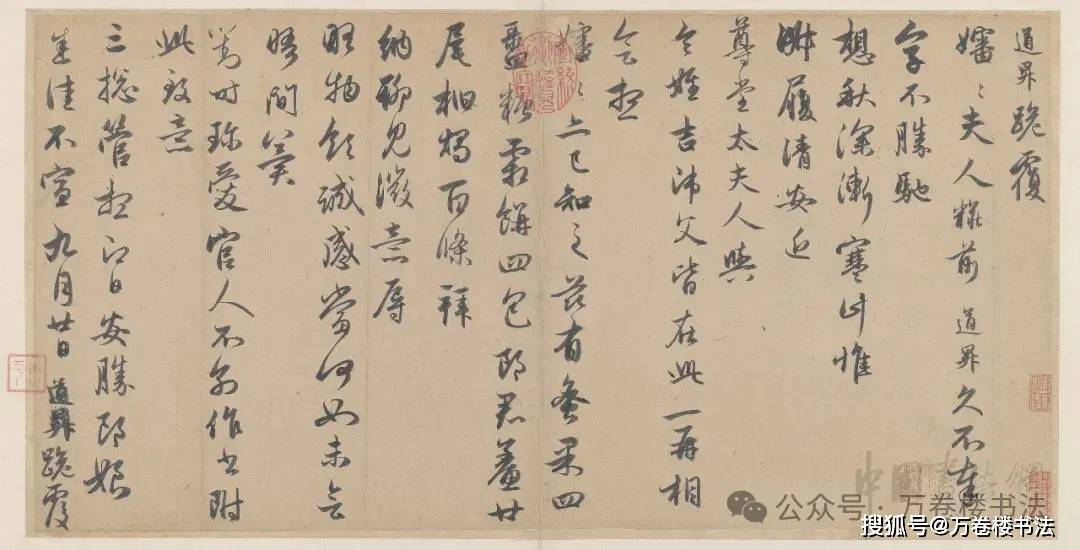 道昇跪覆
嬸〻夫人粧前道昇久不奉
字不勝馳
想秋深漸寒計惟
淑履清安近
尊堂太夫人與
令姪吉師父皆在此一再相
會想
嬸〻亦已知之茲有蜜果四
盝糖霜餅四包郎君鯗廿
尾柏燭百條拜
納聊見微意辱
物領誠感當何如未會
晤間冀
對時珍愛官人不別作書附
此致意
三總管想即日安勝郎娘
悉佳不宣九月廿日道昇跪覆
公众号·万卷楼书法
搜狐号@万卷楼书法